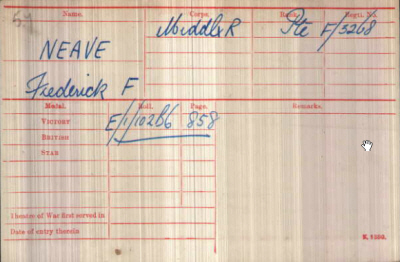 Name. Corps. Rank. Regtl. No.
NEAVE Middlx R Pte F/3268
Frederick F
Medal. Roll. Page. Remarks.
VICTORY E/1/102B6 858
BRITISH
STAR
Theatre of War first served in
Date of entry therein
K. 1380.